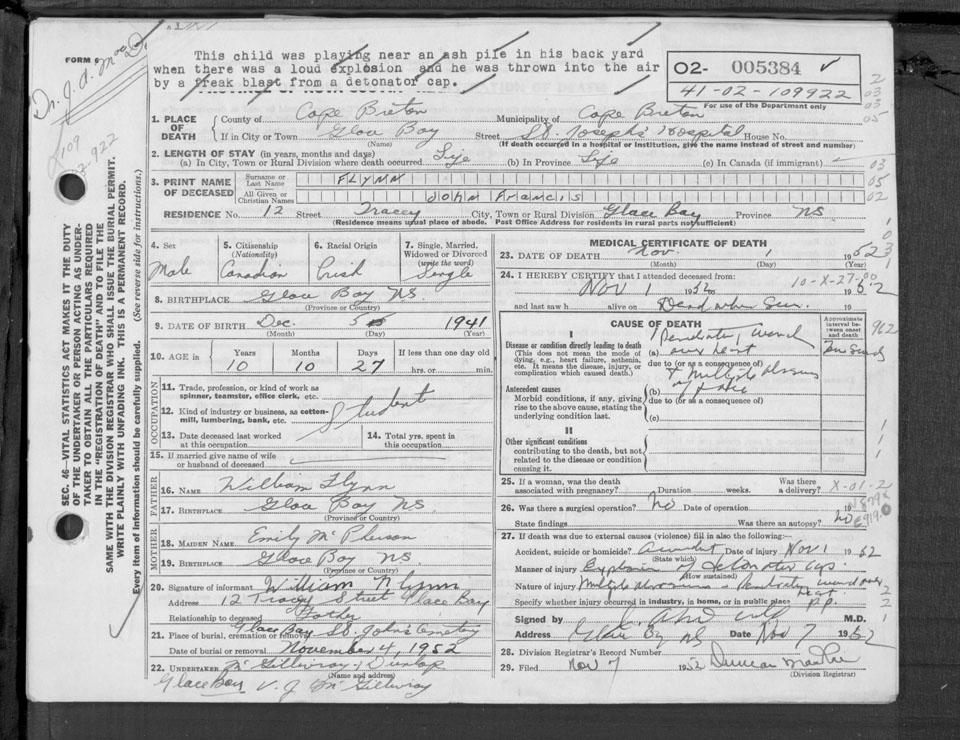 FORM 6
Dr. J. A. MacD.
This child was playing near an ash pile in his back yard
when there was a loud explosion and he was thrown into the air
by a freak blast from a detonator cap.
02- 005384
41-02-109922
For use of the Department only
2
03
03
05
109
02,922
1. PLACE OF DEATH
County of Cape Breton Municipality of Cape Breton
If in City or Town Glace Bay Street St. Joseph's Hospital House No.
(Name) (If death occurred in a hospital or institution, give the name instead of street and number)
2. LENGTH OF STAY (in years, months and days)
(a) In City, Town or Rural Division where death occurred Life (b) In Province Life (c) In Canada (if immigrant)
03
3. PRINT NAME OF DECEASED
Surname or Last Name FLYNN
05
All Given or Christian Names John Francis
02
RESIDENCE No. 12 Street Tracey City, Town or Rural Division Glace Bay Province NS
(Residence means usual place of abode. Post Office Address for residents in rural parts not sufficient)
SEC. 46—VITAL STATISTICS ACT MAKES IT THE DUTY
OF THE UNDERTAKER OR PERSON ACTING AS UNDER-
TAKER TO OBTAIN ALL THE PARTICULARS REQUIRED
IN THE "REGISTRATION OF DEATH" AND TO FILE THE
SAME WITH THE DIVISION REGISTRAR WHO SHALL ISSUE THE BURIAL PERMIT.
WRITE PLAINLY WITH UNFADING INK. THIS IS A PERMANENT RECORD.
Every item of Information should be carefully supplied. (See reverse side for instructions.)
4. Sex
Male
5. Citizenship (Nationality)
Canadian
6. Racial Origin
Irish
7. Single, Married, Widowed or Divorced (write the word)
Single
8. BIRTHPLACE Glace Bay NS.
(Province or Country)
9. DATE OF BIRTH Dec. 5 1941
(Month) (Day) (Year)
10. AGE in
Years 10
Months 10
Days 27
If less than one day old
hrs. or min.
OCCUPATION
11. Trade, profession, or kind of work as spinner, teamster, office clerk, etc.
12. Kind of industry or business, as cotton-mill, lumbering, bank, etc.
Student
13. Date deceased last worked at this occupation
14. Total yrs. spent in this occupation
15. If married give name of wife or husband of deceased
FATHER
16. NAME William Flynn
17. BIRTHPLACE Glace Bay NS
(Province or Country)
MOTHER
18. MAIDEN NAME Emily McPherson
19. BIRTHPLACE Glace Bay NS
(Province or Country)
20. Signature of informant William Flynn
Address 12 Tracey Street Glace Bay
Relationship to deceased Father
21. Place of burial, cremation or removal Glace Bay St. John's Cemetery
Date of burial or removal November 4, 1952
22. UNDERTAKER McGillivray & Dunlop
(Name and address)
Glace Bay V. J. McGillivray
MEDICAL CERTIFICATE OF DEATH
23. DATE OF DEATH Nov. 1 1952
(Month) (Day) (Year)
24. I HEREBY CERTIFY that I attended deceased from:
10-X-27-00
Nov 1 1952 to 1952
and last saw h alive on Dead when seen. 19
CAUSE OF DEATH
Approximate interval between onset and death
I
Disease or condition directly leading to death
(This does not mean the mode of dying, e.g., heart failure, asthenia, etc. It means the disease, injury, or complication which caused death.)
(a) Penetrating wound
over heart
Few Seconds
due to (or as a consequence of)
Antecedent causes
Morbid conditions, if any, giving rise to the above cause, stating the underlying condition last.
(b) & multiple abrasions
of face
due to (or as a consequence of)
(c)
II
Other significant conditions contributing to the death, but not related to the disease or condition causing it.
25. If a woman, was the death associated with pregnancy? Duration weeks. Was there a delivery? X-01-2
26. Was there a surgical operation? No Date of operation 19
State findings Was there an autopsy? No
27. If death was due to external causes (violence) fill in also the following:—
Accident, suicide or homicide? Accident Date of injury Nov 1 1952
(State which)
Manner of injury Explosion of detonator cap.
(How sustained)
Nature of injury Multiple abrasions & Penetrating wound over
heart
Specify whether injured in industry, in home, or in public place P.P.
Signed by M.D.
Address Glace Bay NS Date Nov 7 1952
28. Division Registrar's Record Number
29. Filed Nov 7 1952 Duncan
(Division Registrar)